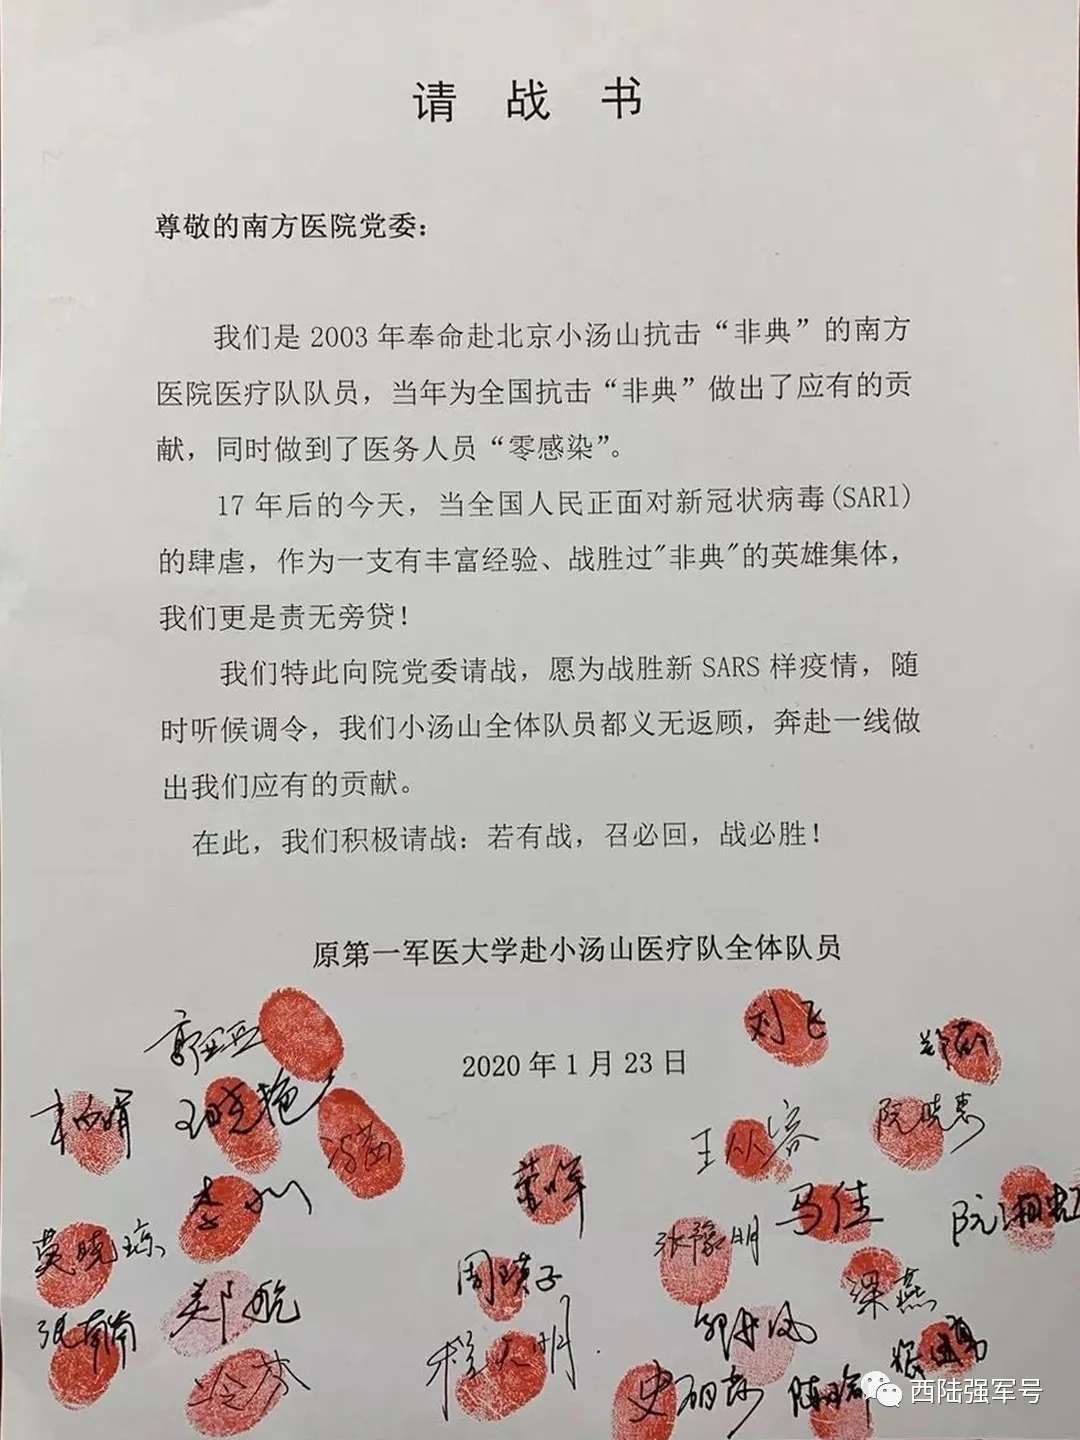 请战书
尊敬的南方医院党委：
我们是2003年奉命赴北京小汤山抗击“非典”的南方
医院医疗队队员，当年为全国抗击“非典”做出了应有的贡
献，同时做到了医务人员“零感染”。
17年后的今天，当全国人民正面对新冠状病毒(SARl)
的肆虐，作为一支有丰富经验、战胜过"非典"的英雄集体，
我们更是责无旁贷！
我们特此向院党委请战，愿为战胜新SARS样疫情，随
时听候调令，我们小汤山全体队员都义无返顾，奔赴一线做
出我们应有的贡献。
在此，我们积极请战：若有战，召必回，战必胜！
原第一军医大学赴小汤山医疗队全体队员
2020年1月23日
郭亚亚
刘飞
王晓艳
阮晓惠
王从容
马佳
莫晓琼
张豫明
周瑛子
梁燕
张南南
郑航
史丽莎
西陆强军号